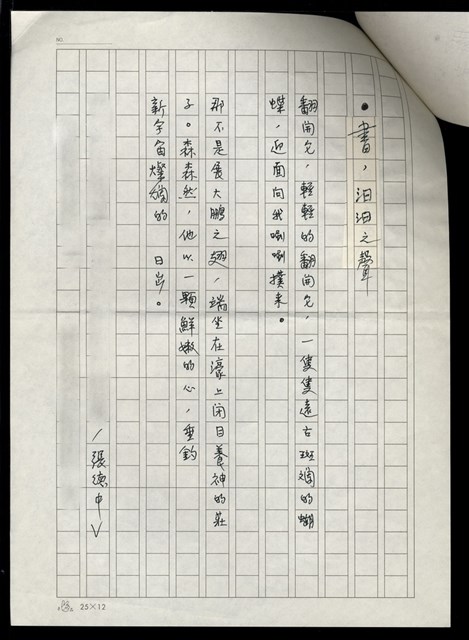 NO.
●書,汩汩之聲
翻開它,輕輕的翻開它,一隻隻遠古斑斕的蝴
蝶,迎面向我唰唰撲來。
那不是展大鵬之翅,端坐在濠上閉目養神的莊
子。森森然,他以一顆鮮嫩的心,垂釣
新宇宙燦爛的 日出。
/張德中
25×12